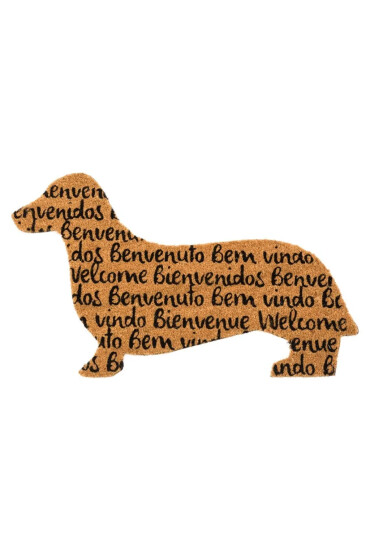 ienven
envenidos
Benvenu
dos Benvenuto Bem vindo
Welcome Bienvenidos Benven
dos Benvenuto Bem vindo Bo
vindo Bienvenue Welcome
uto Bem vindo enue
s Be indo b